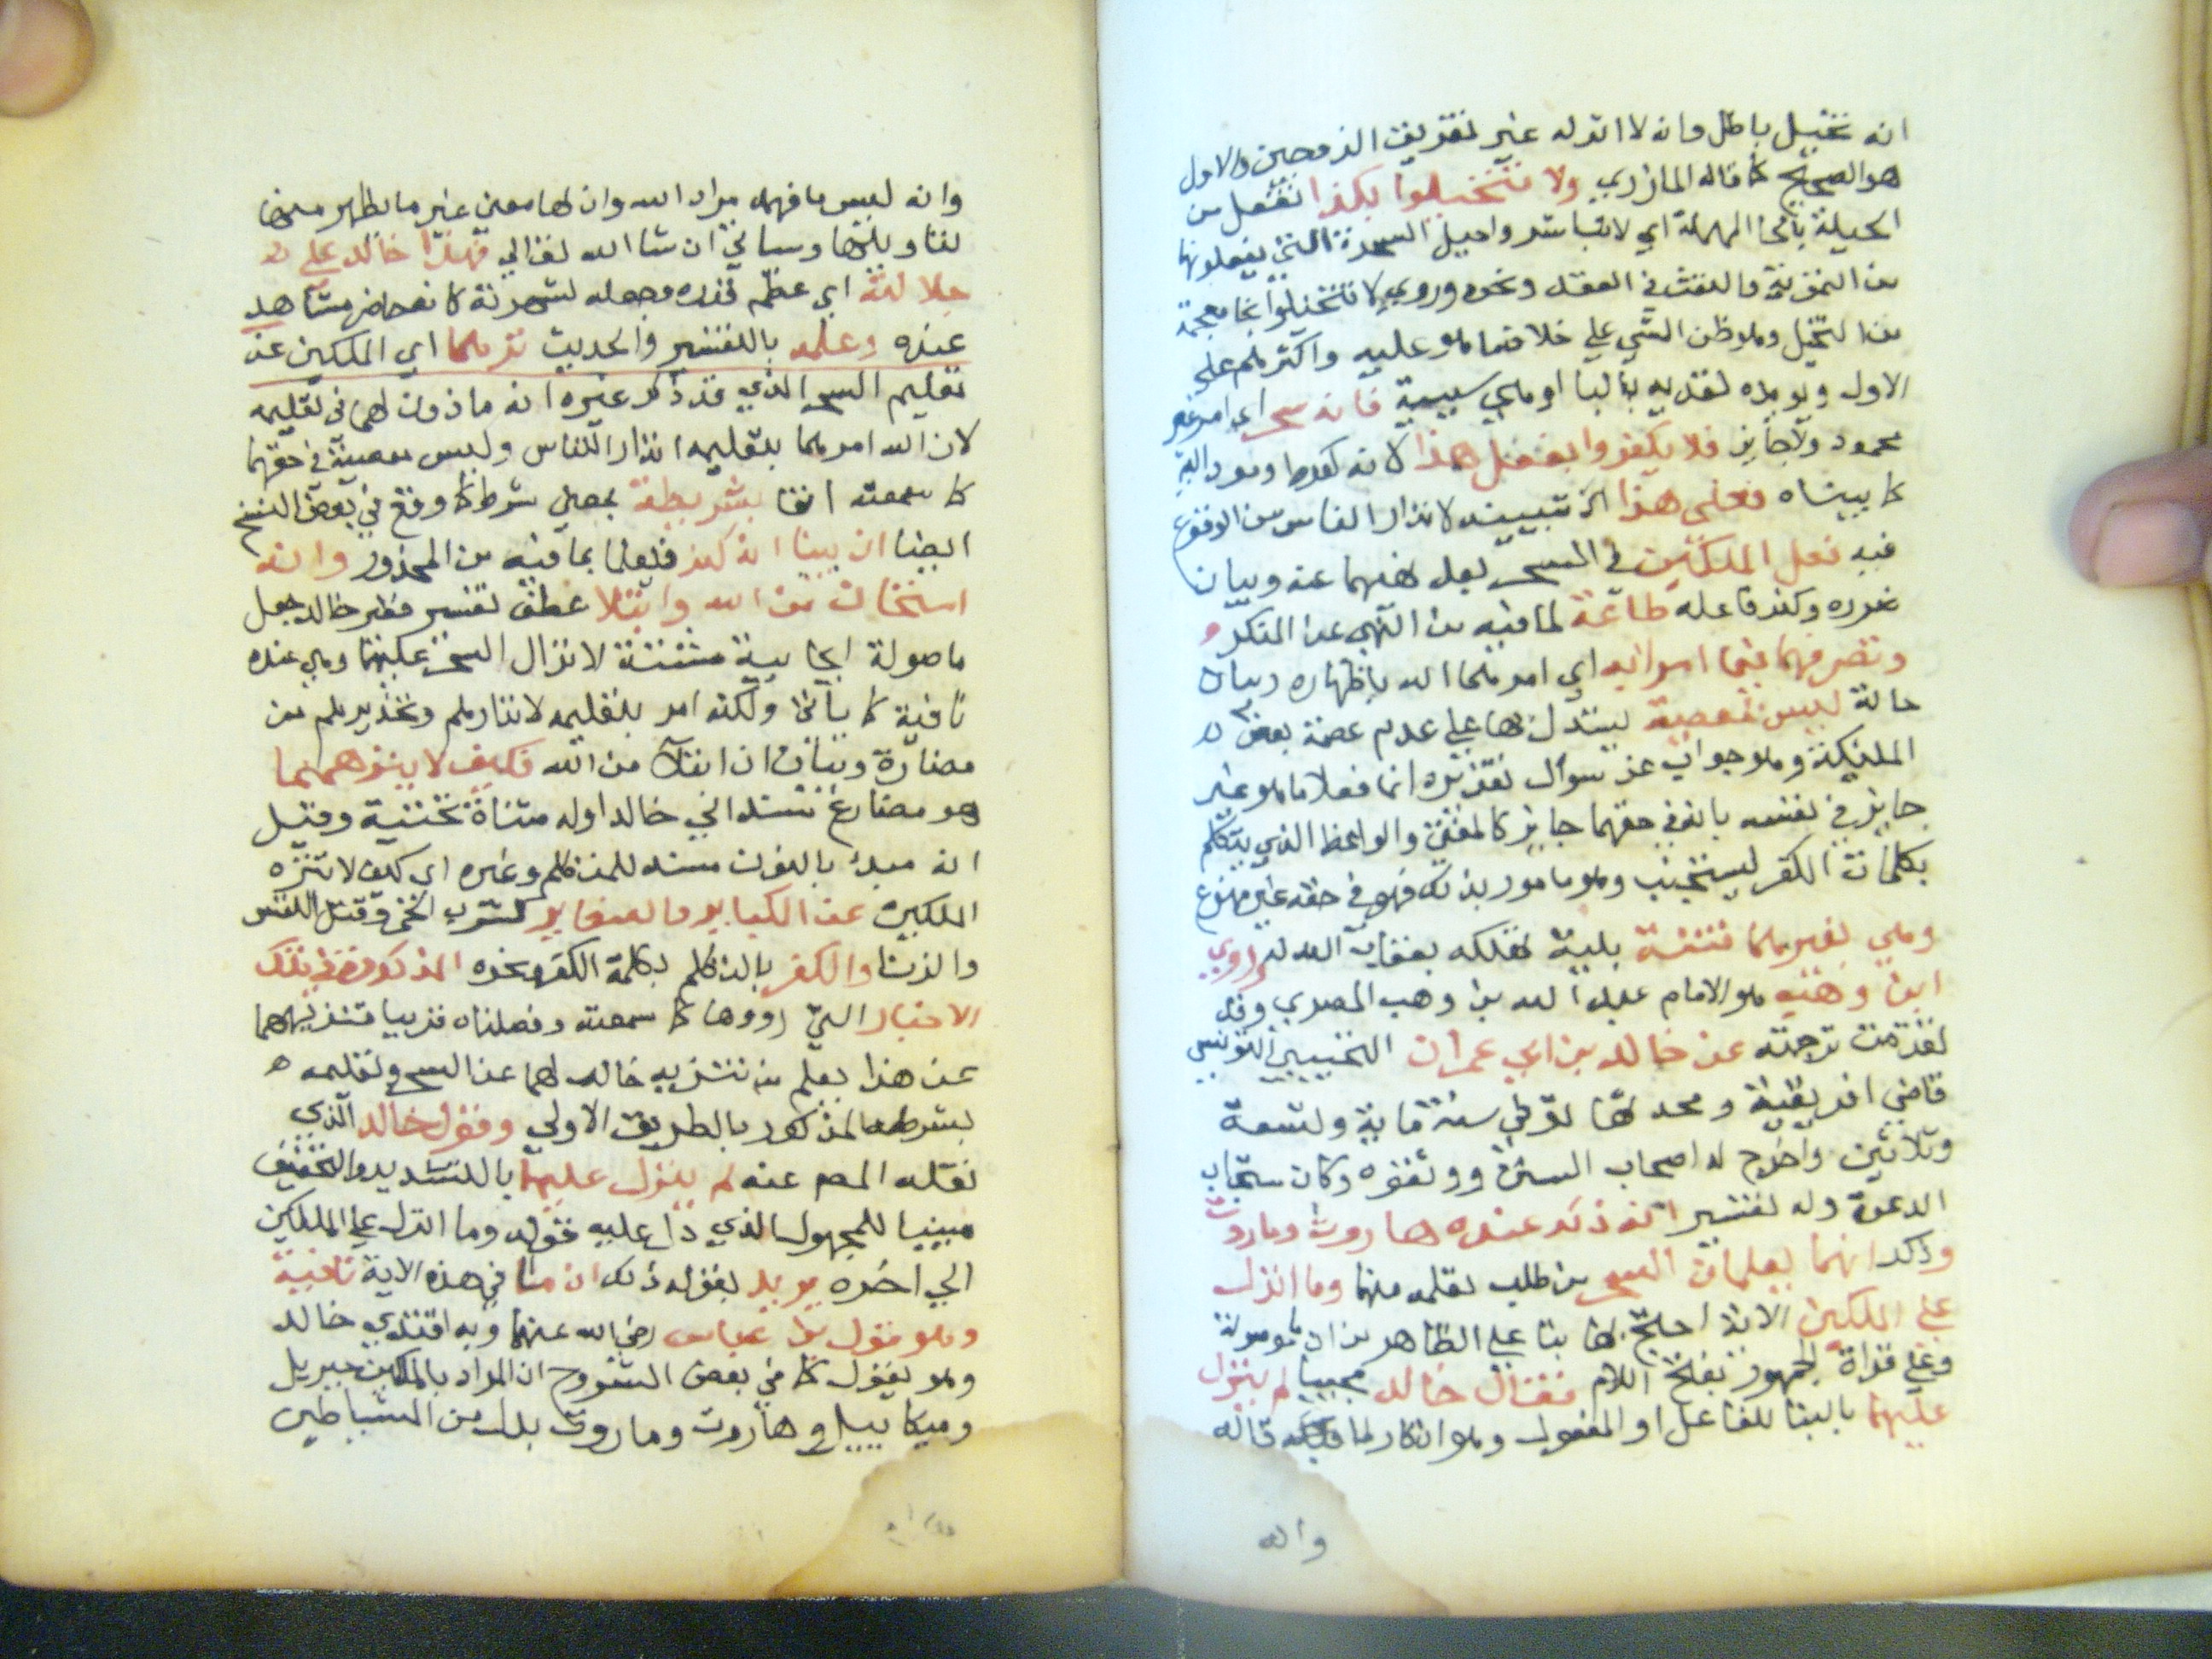 انه تخييل باطل وانه لا اثر له غير تفريق الزوجين والاول
هو الصحيح كما قاله المازري ولا تتحيلوا بكذا تفعل من
الحيلة بالحا المهملة اي لا تباشروا حيل السحرة التي يفعلونها
من التمويه والنفث في العقد ونحوه وروي لا تتخيلوا بخا معجمة
من التخيل وهو ظن الشي علي خلاف ما هو عليه واكثرهم علي
الاول ويويده تعديه بالبا او هي سببية فانه سحر اي امر غير
محمود ولا جايز فلا تكفروا بفعل هذا لانه كفر
كما بيناه فعلي هذا اي تبيينه لانذار الناس من الوقوع
فيه فعل الملكين في السحر بعد نهيهما عنه وبيان
ضرره وكفر فاعله طاعة لما فيه من النهي عن المنكر و
وتصرفهما فيما امرا به اي امرهما الله باظهاره وبيان
حاله ليس بمعصية يستدل بها علي عدم عصمة بعض
المليكة وهو جواب عن سوال تقديره انما فعلا ما هو غير
جايز في نفسه بانه في حقهما جايز كالمفتي والواعظ الذي يتكلم
بكلمات الكفر ليستجنب وهو مامور بذلك فهو في حقه غير ممنوع
وهي لغيرهما فتنة بلية تهلكه بعقاب الله له وروي
ابن وهب هو الامام عبد الله بن وهب المصري وقد
تقدمت ترجمته عن خالد بن ابي عمران التجيبي التونسي
قاضي افريقية ومحدثها توفي سنة ماية وتسعة
وثلاثين واخرج له اصحاب السنن ووثقوه وكان مستجاب
الدعوة وله تفسير انه ذكر عنده هاروت وماروت
وذكر انهما يعلمان السحر من طلب تعلمه منهما وما انزل
علي الملكين الاية احتج بها بنا علي الظاهر من ان ما موصولة
وعلي قراة الجمهور بفتح اللام فقال خالد مجيبا لم ينزل
عليهما بالبنا للفاعل او المفعول وهو انكار لما قاله
وانه
وانه ليس ما فهمه مراد الله وان لها معني غير ما يظهر منها
لتاويلها وسياتي ان شا الله تعالي فهذا خالد علي
جلالته اي عظم قدره وجعله لشهرته كانه حاضر مشاهد
عنده وعلمه بالتفسير والحديث نزههما اي الملكين عن
تعليم السحر الذي قد ذكر غيره انه ماذون لهما في تعليمه
لان الله امرهما بتعليمه انذارا للناس وليس بمعصية في حقهما
كما سمعته انفا بشريطة بمعني شرط كما وقع في بعض النسخ
ايضا ان يبينا انه كفر فيعلما بما فيه من المحذور وانه
امتحان من الله وابتلا عطف تفسير فظهر خالد جعل
ما موصولة ايجابية مثبتة لانزال السحر عليهما وهي عنده
نافية كما ياتي ولكنه امر بتعليمه لانذارهم وتحذيرهم من
مضاره وبيان ان ابتلا من الله فكيف لا ينزههما
هو مضارع مسند الي خالد اوله مثناة تحتية وقيل
انه مبدو بالنون مسند للمتكلم وغيره اي كيف لا ننزه
الملكين عن الكباير والصغاير كشرب الخمر وقتل النفس
والزنا والكفر بالتكلم بكلمة الكفر ونحوه المذكورة في تلك
الاخبار التي رووها كما سمعته وفصلناه قريبا فتنزيههما
عن هذا يعلم من تنزيه خالد لهما عن السحر وتعليمه
بشرطه المذكور بالطريق الاولي وقول خالد الذي
نقله المصم عنه لم ينزل عليهما بالتشديد والتخفيف
مبنيا للمجهول الذي دل عليه قوله وما انزل علي الملكين
الي اخره يريد بقوله ذلك ان ما في هذه الاية نافية
وهو قول بن عباس رضي الله عنهما وبه اقتدي خالد
وهو يقول كما في بعض الشروح ان المراد بالملكين جبريل
وميكاييل وهاروت وماروت بدل من الشياطين